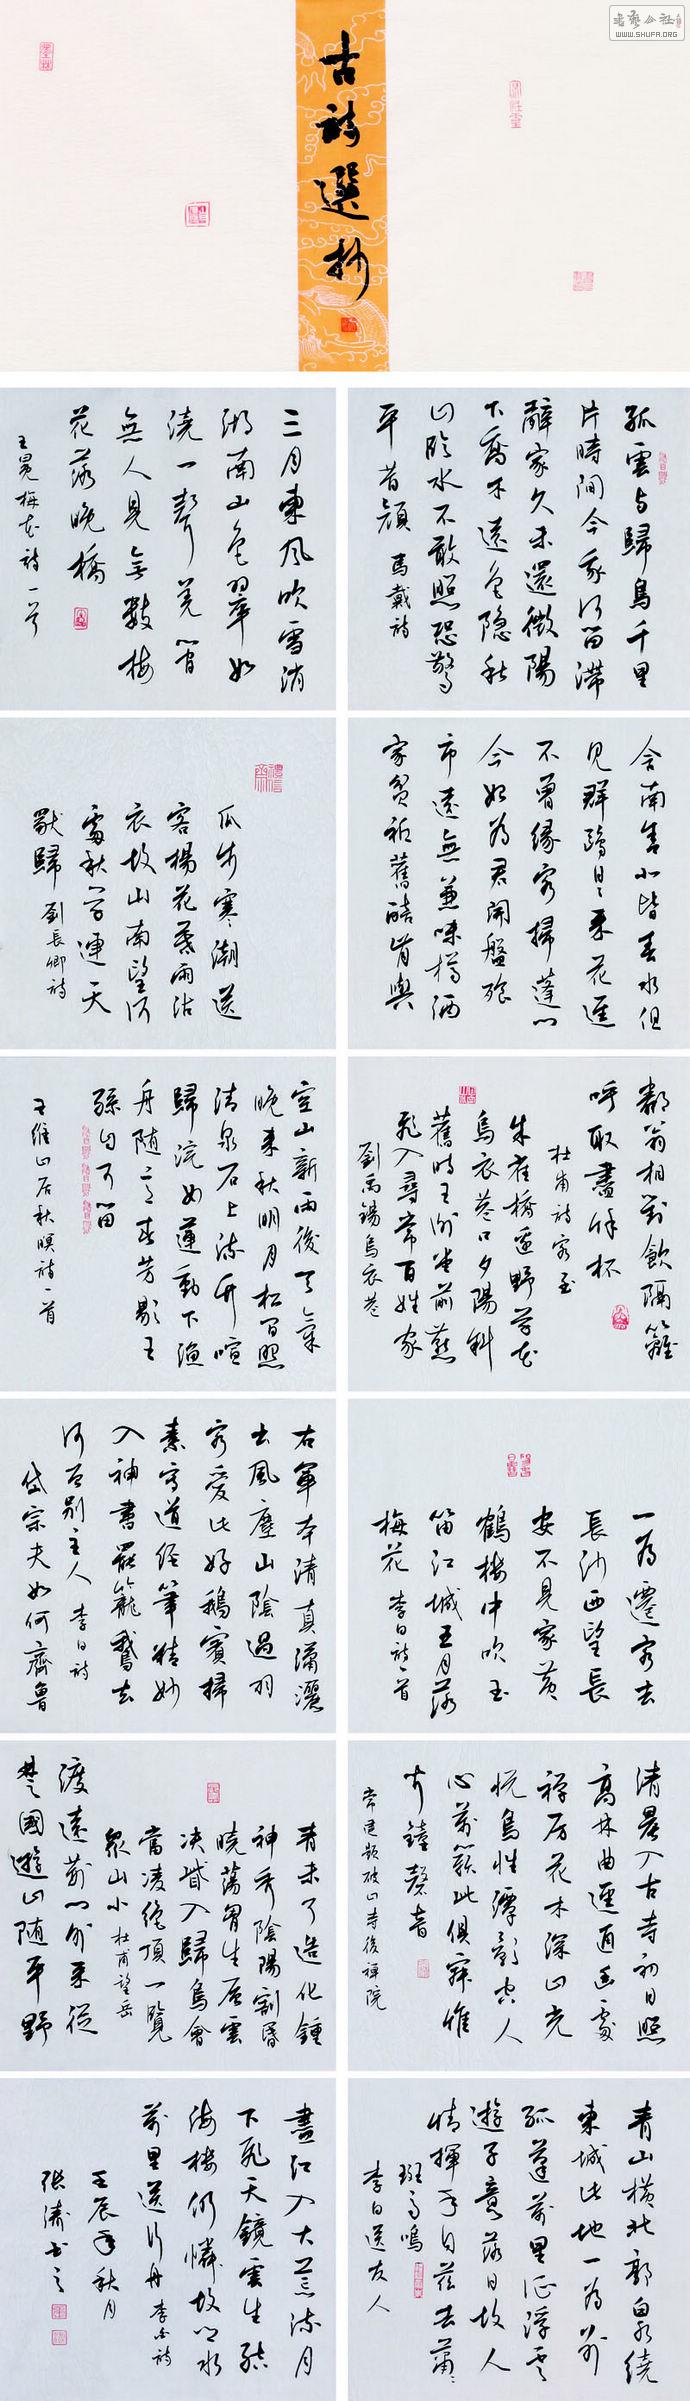 WWW.SHUFA.ORG
古詩選抄
孤雲与歸鳥千里
片時間念我何留滯
辭家久未還微陽
下喬木遠色隐秋
山臨水不敢照恐驚
平昔顔 馬戴詩
舍南舍北皆春水但
見群鷗日日來花徑
不曾緣客掃蓬門
今始為君開盤飧
市遠無兼味樽酒
家貧衹舊醅肯與
鄰翁相對飲隔籬
呼取盡餘杯
杜甫詩客至
朱雀橋邊野草花
烏衣巷口夕陽斜
舊時王謝堂前燕
飛入尋常百姓家
劉禹錫烏衣巷
一為遷客去
長沙西望長
安不見家黃
鶴樓中吹玉
笛江城五月落
梅花 李白詩一首
清晨入古寺初日照
高林曲徑通幽處
禅房花木深山光
悦鳥性潭影空人
心萬籟此俱寂惟
聞鐘磬音
常建題破山寺後禅院
青山橫北郭白水繞
東城此地一為別
孤蓬萬里征浮雲
遊子意落日故人
情揮手自茲去蕭蕭
班馬鳴
李白送友人
三月東風吹雪消
湖南山色翠如
澆一聲羌管
無人見無數梅
花落晚橋
王冕梅花詩一首
瓜步寒潮送
客楊花暮雨沾
衣故山南望何
處秋草連天
獨歸 劉長卿詩
空山新雨後天氣
晚來秋明月松間照
清泉石上流竹喧
歸浣女蓮動下漁
舟随意春芳歇王
孫自可留
王維山居秋暝詩一首
右軍本清真瀟灑
出風塵山陰過羽
客愛此好鵝賓掃
素寫道經筆精妙
入神書罷籠鵝去
何曾別主人 李白詩
岱宗夫如何齊魯
青未了造化鍾
神秀陰陽割昏
曉蕩胸生层雲
决眥入歸鳥會
當凌絕頂一覽
衆山小 杜甫望岳
渡遠荊門外來從
楚國遊山随平野
盡江入大荒流月
下飛天鏡雲生結
海樓仍憐故鄉水
萬里送行舟 李白詩
壬辰年秋月
張濤書之